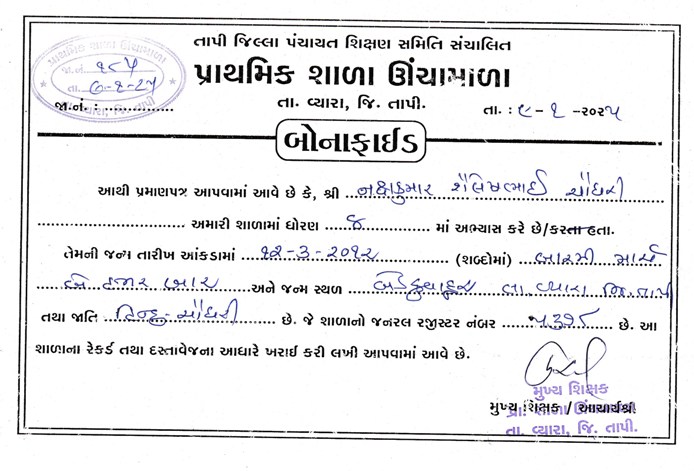 તાપી જિલ્લા પંચાયત શિક્ષણ સમિતિ સંચાલિત
પ્રાથમિક શાળા ઊંચામાળા
તા. વ્યારા, જિ. તાપી.
પ્રાથમિક શાળા ઊંચામાળા
જા.નં. ૧૮૫
તા.
વ્યારા, જિ. તાપી
જા.નં. : ..............
તા. : ૯-૧-૨૦૨૫
બોનાફાઈડ
આથી પ્રમાણપત્ર આપવામાં આવે છે કે, શ્રી નક્ષકુમાર શૈલેષભાઈ ચૌધરી
અમારી શાળામાં ધોરણ ૭ માં અભ્યાસ કરે છે/કરતા હતા.
તેમની જન્મ તારીખ આંકડામાં ૧૨-૩-૨૦૧૨ (શબ્દોમાં) બારમી માર્ચ
બે હજાર બાર અને જન્મ સ્થળ તા. વ્યારા જિ. તાપી
તથા જાતિ હિન્દુ-ચૌધરી છે. જે શાળાનો જનરલ રજીસ્ટર નંબર છે. આ
શાળાના રેકર્ડ તથા દસ્તાવેજના આધારે ખરાઈ કરી લખી આપવામાં આવે છે.
મુખ્ય શિક્ષક
મુખ્ય શિક્ષક / આચાર્યશ્રી
તા. વ્યારા, જિ. તાપી.